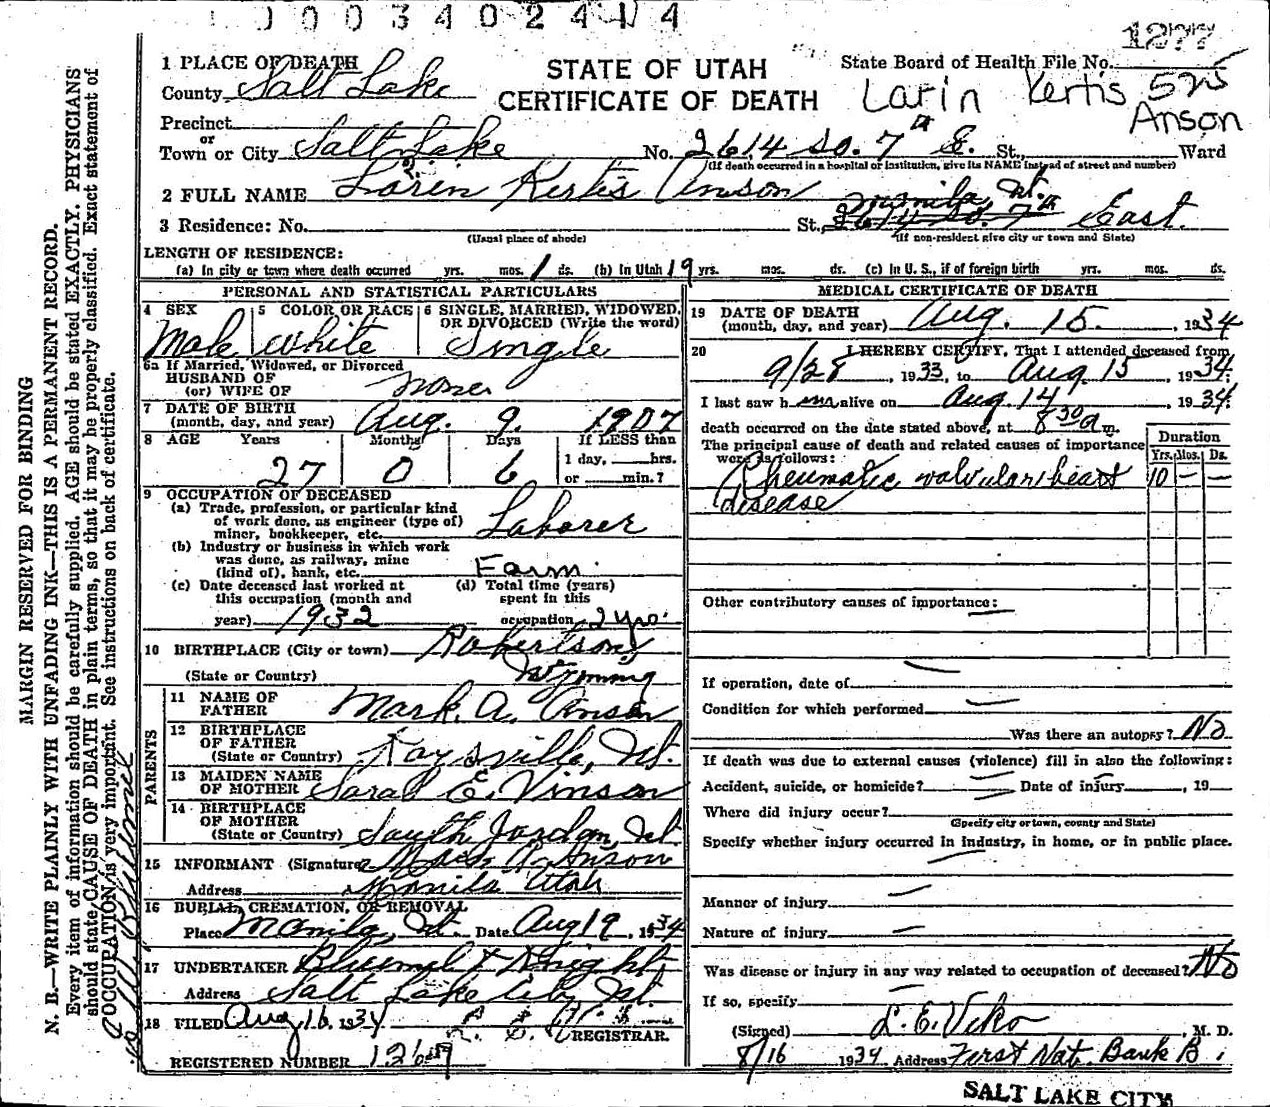 0003402414
1277
1 PLACE OF DEATH
County Salt Lake
STATE OF UTAH
CERTIFICATE OF DEATH
State Board of Health File No.
Larin Kertis 525
Anson
Precinct
or
Town or City Salt Lake No. 2614 So. 7th E. St., Ward
(If death occurred in a hospital or institution, give its NAME instead of street and number)
2 FULL NAME Larin Kertis Anson
Manila, Ut.
3 Residence: No. St. 2614 So. 7th East.
(Usual place of abode) (If non-resident give city or town and State)
LENGTH OF RESIDENCE:
(a) In city or town where death occurred yrs. mos. 1 ds. (b) In Utah 19 yrs. mos. ds. (c) In U. S., if of foreign birth yrs. mos. ds.
PERSONAL AND STATISTICAL PARTICULARS
4 SEX 5 COLOR OR RACE 6 SINGLE, MARRIED, WIDOWED, OR DIVORCED (Write the word)
Male white Single
6a If Married, Widowed, or Divorced
HUSBAND OF
(or) WIFE OF none
7 DATE OF BIRTH
(month, day, and year) Aug. 9. 1907
8 AGE Years Months Days If LESS than
1 day, hrs.
27 0 6 or min.?
9 OCCUPATION OF DECEASED
(a) Trade, profession, or particular kind
of work done, as engineer (type of)
miner, bookkeeper, etc. Laborer
(b) Industry or business in which work
was done, as railway, mine
(kind of), bank, etc. Farm.
(c) Date deceased last worked at
this occupation (month and
year) 1932
(d) Total time (years)
spent in this
occupation 2 yrs.
10 BIRTHPLACE (City or town) Robertson,
(State or Country) Wyoming
PARENTS
11 NAME OF
FATHER Mark. A. Anson
12 BIRTHPLACE
OF FATHER
(State or Country) Kaysville, Ut.
13 MAIDEN NAME
OF MOTHER Sarah E. Vinson
14 BIRTHPLACE
OF MOTHER
(State or Country) South Jordan, Ut.
15 INFORMANT (Signature) Mark A. Anson
Address Manila Utah
16 BURIAL, CREMATION, OR REMOVAL
Place Manila, Ut. Date Aug 19, 1934
17 UNDERTAKER Bluemel & Knight
Address Salt Lake City Ut.
18 FILED Aug 16, 1934
REGISTRAR.
REGISTERED NUMBER 1269
MEDICAL CERTIFICATE OF DEATH
19 DATE OF DEATH
(month, day, and year) Aug. 15. , 1934
20 I HEREBY CERTIFY, That I attended deceased from
9/28 , 1933, to Aug. 15 , 1934.
I last saw him alive on Aug. 14 , 1934.
death occurred on the date stated above, at 8 30 a m.
The principal cause of death and related causes of importance
were as follows:
Duration
Yrs. Mos. Ds.
Rheumatic valvular heart 10 — —
disease
Other contributory causes of importance:
If operation, date of
Condition for which performed
Was there an autopsy? No
If death was due to external causes (violence) fill in also the following:
Accident, suicide, or homicide? Date of injury , 19
Where did injury occur?
(Specify city or town, county and State)
Specify whether injury occurred in industry, in home, or in public place.
Manner of injury
Nature of injury
Was disease or injury in any way related to occupation of deceased? No
If so, specify
(Signed) L. E. Viko , M. D.
8/16 1934 Address First Nat. Bank B.
SALT LAKE CITY
MARGIN RESERVED FOR BINDING
N. B.—WRITE PLAINLY WITH UNFADING INK—THIS IS A PERMANENT RECORD.
Every item of information should be carefully supplied. AGE should be stated EXACTLY. PHYSICIANS
should state CAUSE OF DEATH in plain terms, so that it may be properly classified. Exact statement of
OCCUPATION is very important. See instructions on back of certificate.